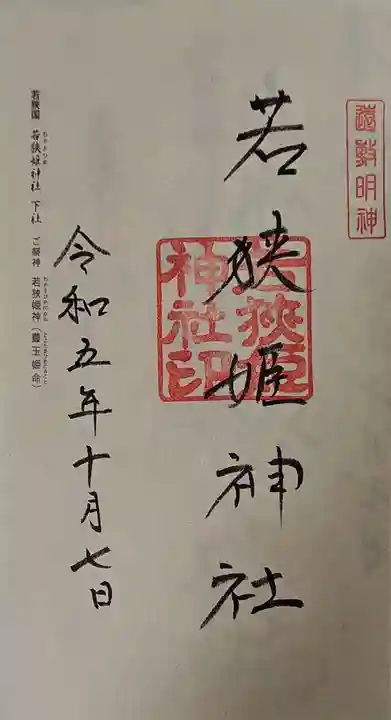 遠敷明神
若狭姫神社
若狭姫神社印
令和五年十月七日
若狭国 若狭姫神社 下社 ご祭神 若狭姫神(豊玉姫命)